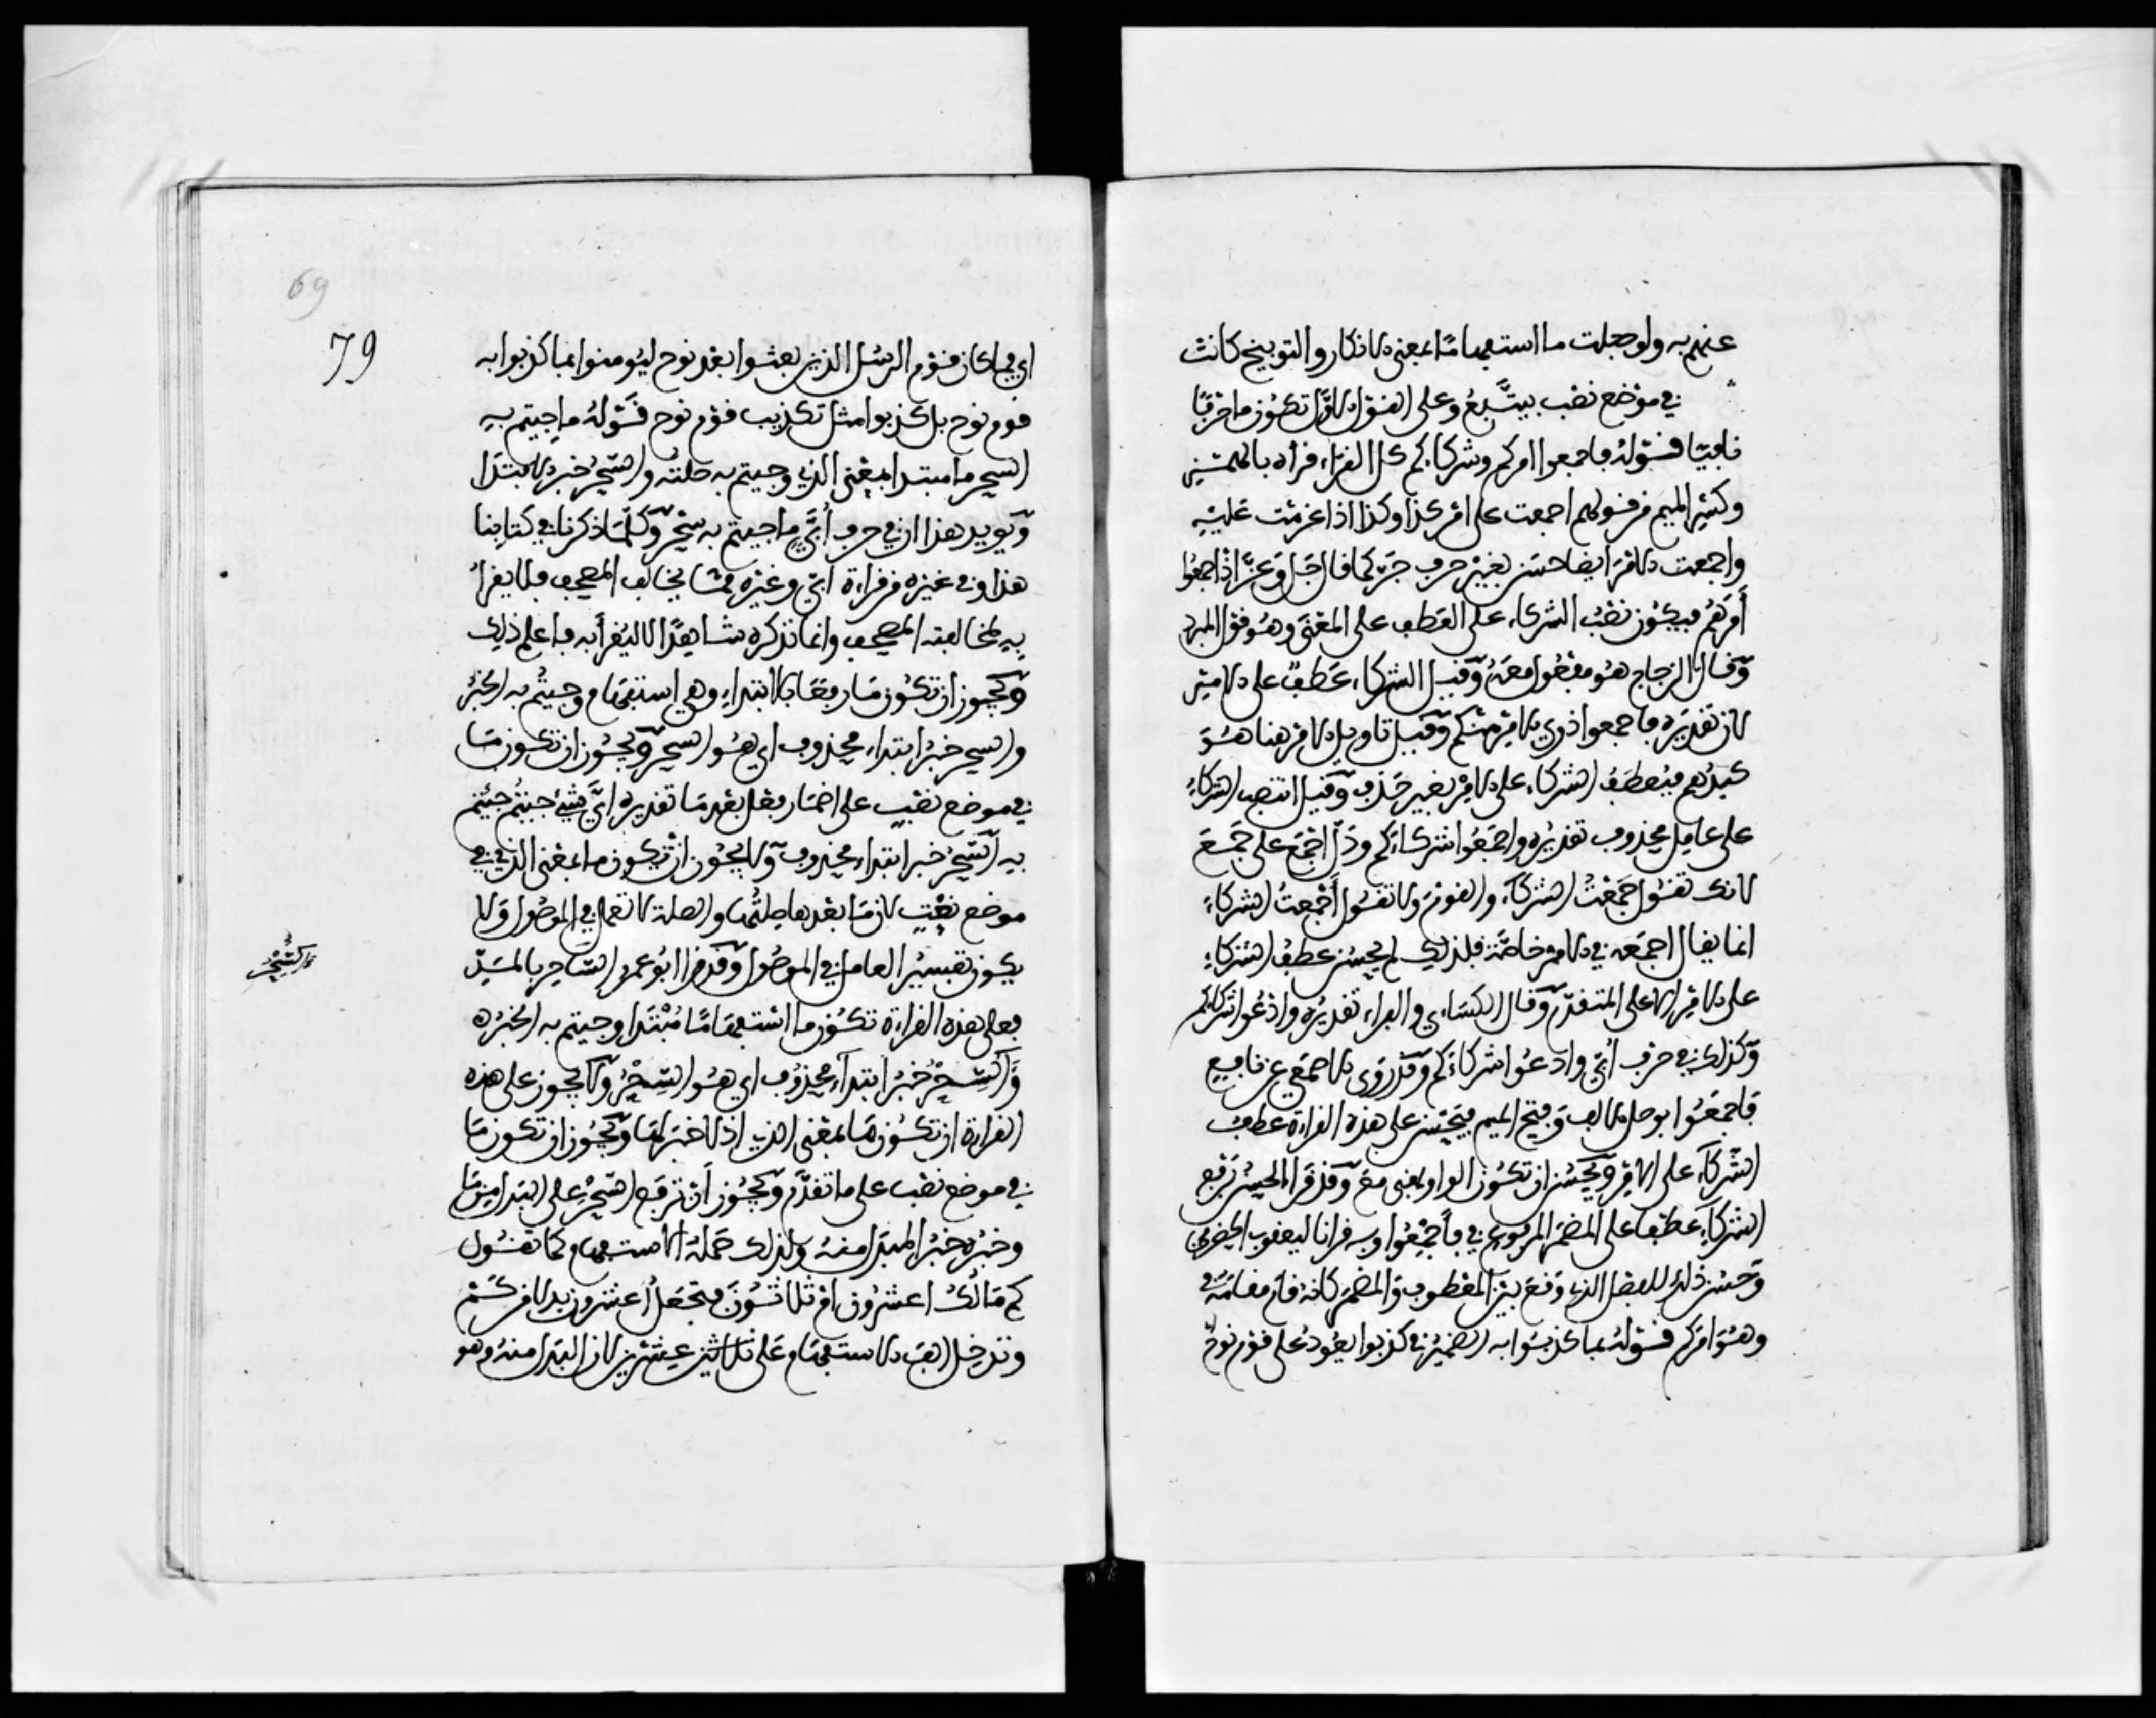 عنهم به ولو جعلت ما استفهاما بمعنى الانكار والتوبيخ كانت
في موضع نصب بيتبع وعلى القول الاول تكون ما حرفا
نافيا قوله فاجمعوا امركم وشركاءكم كل القراء قرأه بالهمز
وكسر الميم من قولهم اجمعت على امر كذا وكذا اذا عزمت عليه
واجمعت الامر ايضا حسن بغير حرف جر كما قال جل وعز اذ اجمعوا
أمرهم فيكون نصب الشركاء على العطف على المعنى وهو قول المبرد
وقال الزجاج هو مفعول معه وقيل الشركاء عطف على الامر
لان تقديره فاجمعوا ذوي الامر منكم وقيل تاويل الامر هنا هو
كيدهم فيعطف الشركاء على الامر بغير حذف وقيل انتصب الشركاء
على عامل محذوف تقديره واجمعوا شركاءكم ودل اجمع على جمع
لانك تقول جمعت الشركاء والقوم ولا تقول أجمعت الشركاء
انما يقال اجمع في الامر خاصة فلذلك لم يحسن عطف الشركاء
على الامر الا على المتقدم وقال الكساءي والفراء تقديره وادعوا شركاءكم
وكذلك في حرف أبي وادعوا شركاءكم وقد روى الاصمعي عن نافع
فاجمعوا بوصل الالف وفتح الميم فيحسن على هذه القراءة عطف
الشركاء على الامر ويحسن ان تكون الواو بمعنى مع وقد قرأ الحسن برفع
الشركاء عطفا على المضمر المرفوع في فأجمعوا وبه قرأنا ليعقوب الحضرمي
وحسن ذلك للفصل الذي وقع بين المعطوف والمضمر كانه قام مقامه
وهو امركم قوله بما كذبوا به الضمير في كذبوا يعود على قوم نوح
69
79
اي فما كان قوم الرسل الذين بعثوا بعد نوح ليومنوا بما كذبوا به
قوم نوح بل كذبوا مثل تكذيب قوم نوح قوله ما جيتم به
السحر ما مبتدا بمعنى الذي وجيتم به صلته والسحر خبر الابتدا
ويويد هذا ان في حرف أبي ما جيتم به سحر وكلما ذكرنا في كتابنا
هذا وفي غيره من قراءة ابي وغيره مما يخالف المصحف فلا يقرأ
به لمخالفته المصحف وانما نذكره شاهدا لا ليقرأ به فاعلم ذلك
ويجوز ان تكون ما رفعا بالابتداء وهي استفهام وجيتم به الخبر
والسحر خبر ابتداء محذوف اي هو السحر ويجوز ان تكون ما
في موضع نصب على اضمار فعل بعد ما تقديره ايّ شيء جيتم جيتم
به السحر خبر ابتداء محذوف ولا يجوز ان تكون ما بمعنى الذي في
موضع نصب لان ما بعدها صلتها والصلة لا تعمل في الموصول ولا
يكون تفسير العامل في الموصول وقد قرأ ابو عمرو السحر بالمد
فعلى هذه القراءة تكون ما استفهاما مبتدا وجيتم به الخبر
والسحر خبر ابتداء محذوف اي هو السحر ولا يجوز على هذه
القراءة ان تكون ما بمعنى الذي اذ لا خبر لها ويجوز ان تكون ما
في موضع نصب على ما تقدم ويجوز أن ترفع السحر على البدل من ما
وخبره خبر المبدل منه ولذلك حمله الاستفهام كما تقول
كم مالك اعشرون ام ثلاثون فتجعل أعشرون بدلا من كم
وتدخل الف الاستفهام على عشرين لان المبدل منه وهو